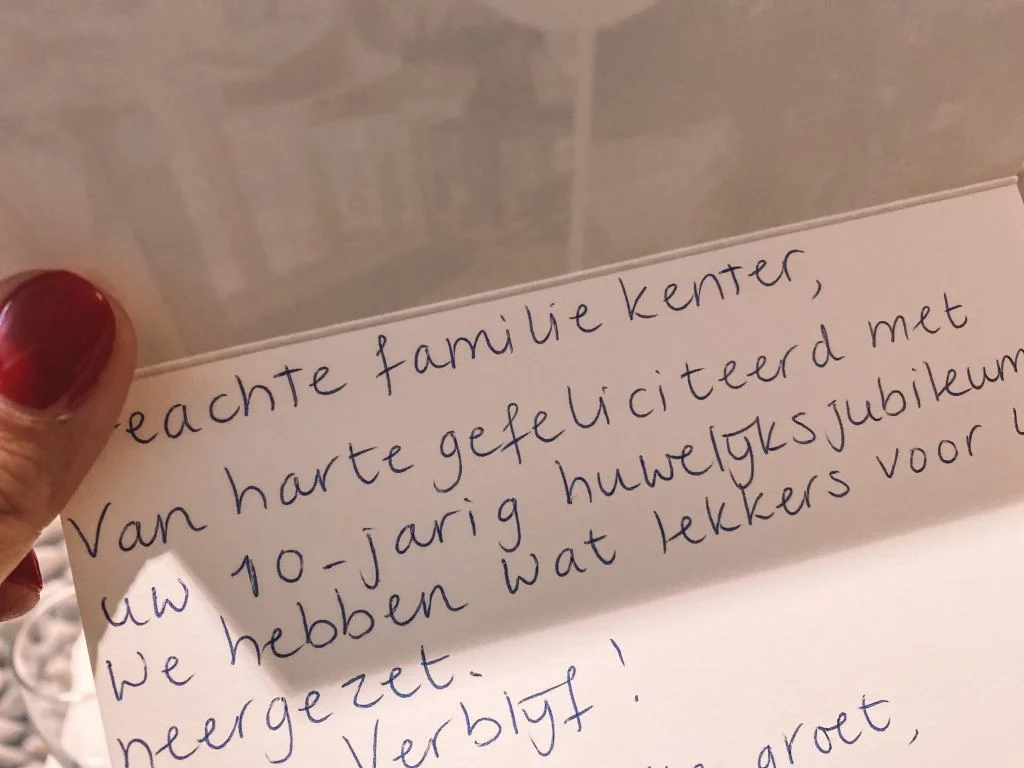 eachte familie kenter,
Van harte gefeliciteerd met
uw 10-jarig huwelijksjubileum
We hebben wat lekkers voor u
neergezet.
Verblijf!
groet,